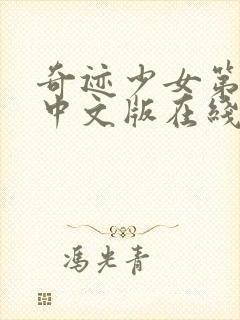 奇迹少女第
中文版在线
冯光青